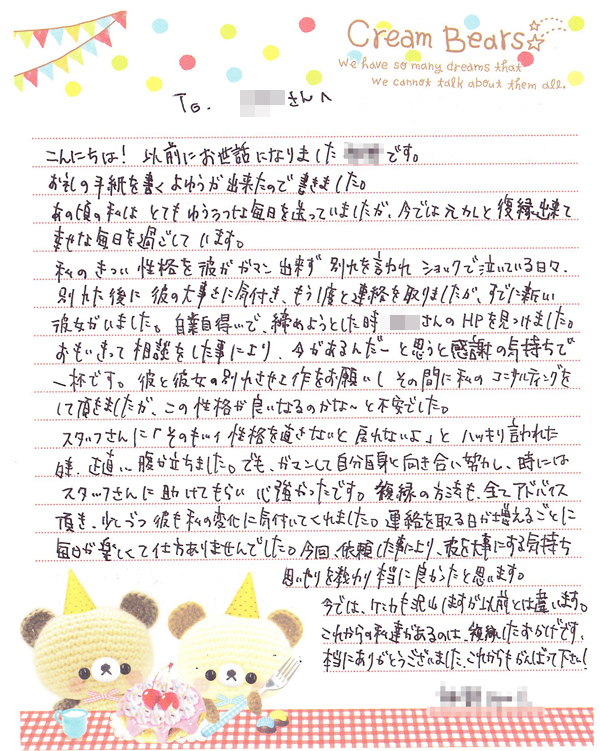 Cream Bears
We have so many dreams that
we cannot talk about them all.
To. さんへ
こんにちは! 以前にお世話になりました です。
お礼の手紙を書くよゆうが出来たので書きました。
あの頃の私は とてもゆううつな毎日を送っていましたが、今では元カレと復縁出来て
幸せな毎日を過ごして います。
私の きつい 性格を彼が ガマン 出来ず 別れを言われ ショックで泣いている日々、
別れた後に 彼の大事さに気付き、もう1度と連絡を取りましたが、すでに新しい
彼女がいました。自業自得いで、締めようとした時 さんの HPを見つけました。
おもいきって 相談をした事により、今があるんだーと思うと感謝の気持ちで
一杯です。彼と彼女の別れさせ工作をお願いし その間に私の コンサルティングを
して頂きましたが、この性格が良いなるのかな~と不安でした。
スタッフさんに「そのキツイ性格を直さないと戻れないよ」と ハッキリ言われた
時、正直い腹が立ちました。でも、ガマンして自分自身と向き合い努力し、時には
スタッフさんに助けてもらい 心強かったです。復縁の方法も、全てアドバイス
頂き、少しづつ 彼も私の変化に気付いてくれました。連絡を取る日が増えるごとに
毎日が楽しくて仕方ありませんでした。今回、依頼した事により、彼を大事にする気持ち
思いやりを教わり 本当に良かったと思います。
今では、ケンカも沢山しますが以前とは違います。
これからの私達があるのは、復縁したおかげです。
本当にありがとうございました、これからもがんばって下さい!